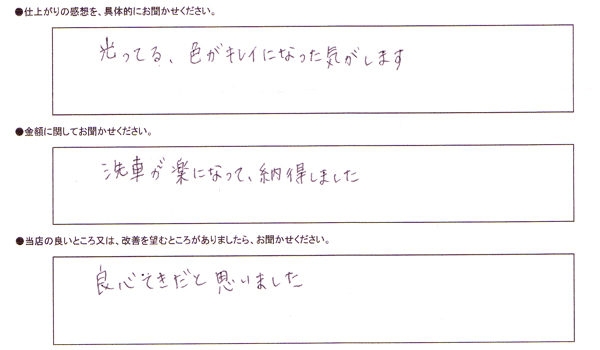 ●仕上がりの感想を、具体的にお聞かせください。
光ってる、色がキレイになった気がします
●金額に関してお聞かせください。
洗車が楽になって、納得しました
●当店の良いところ又は、改善を望むところがありましたら、お聞かせください。
良心てきだと思いました